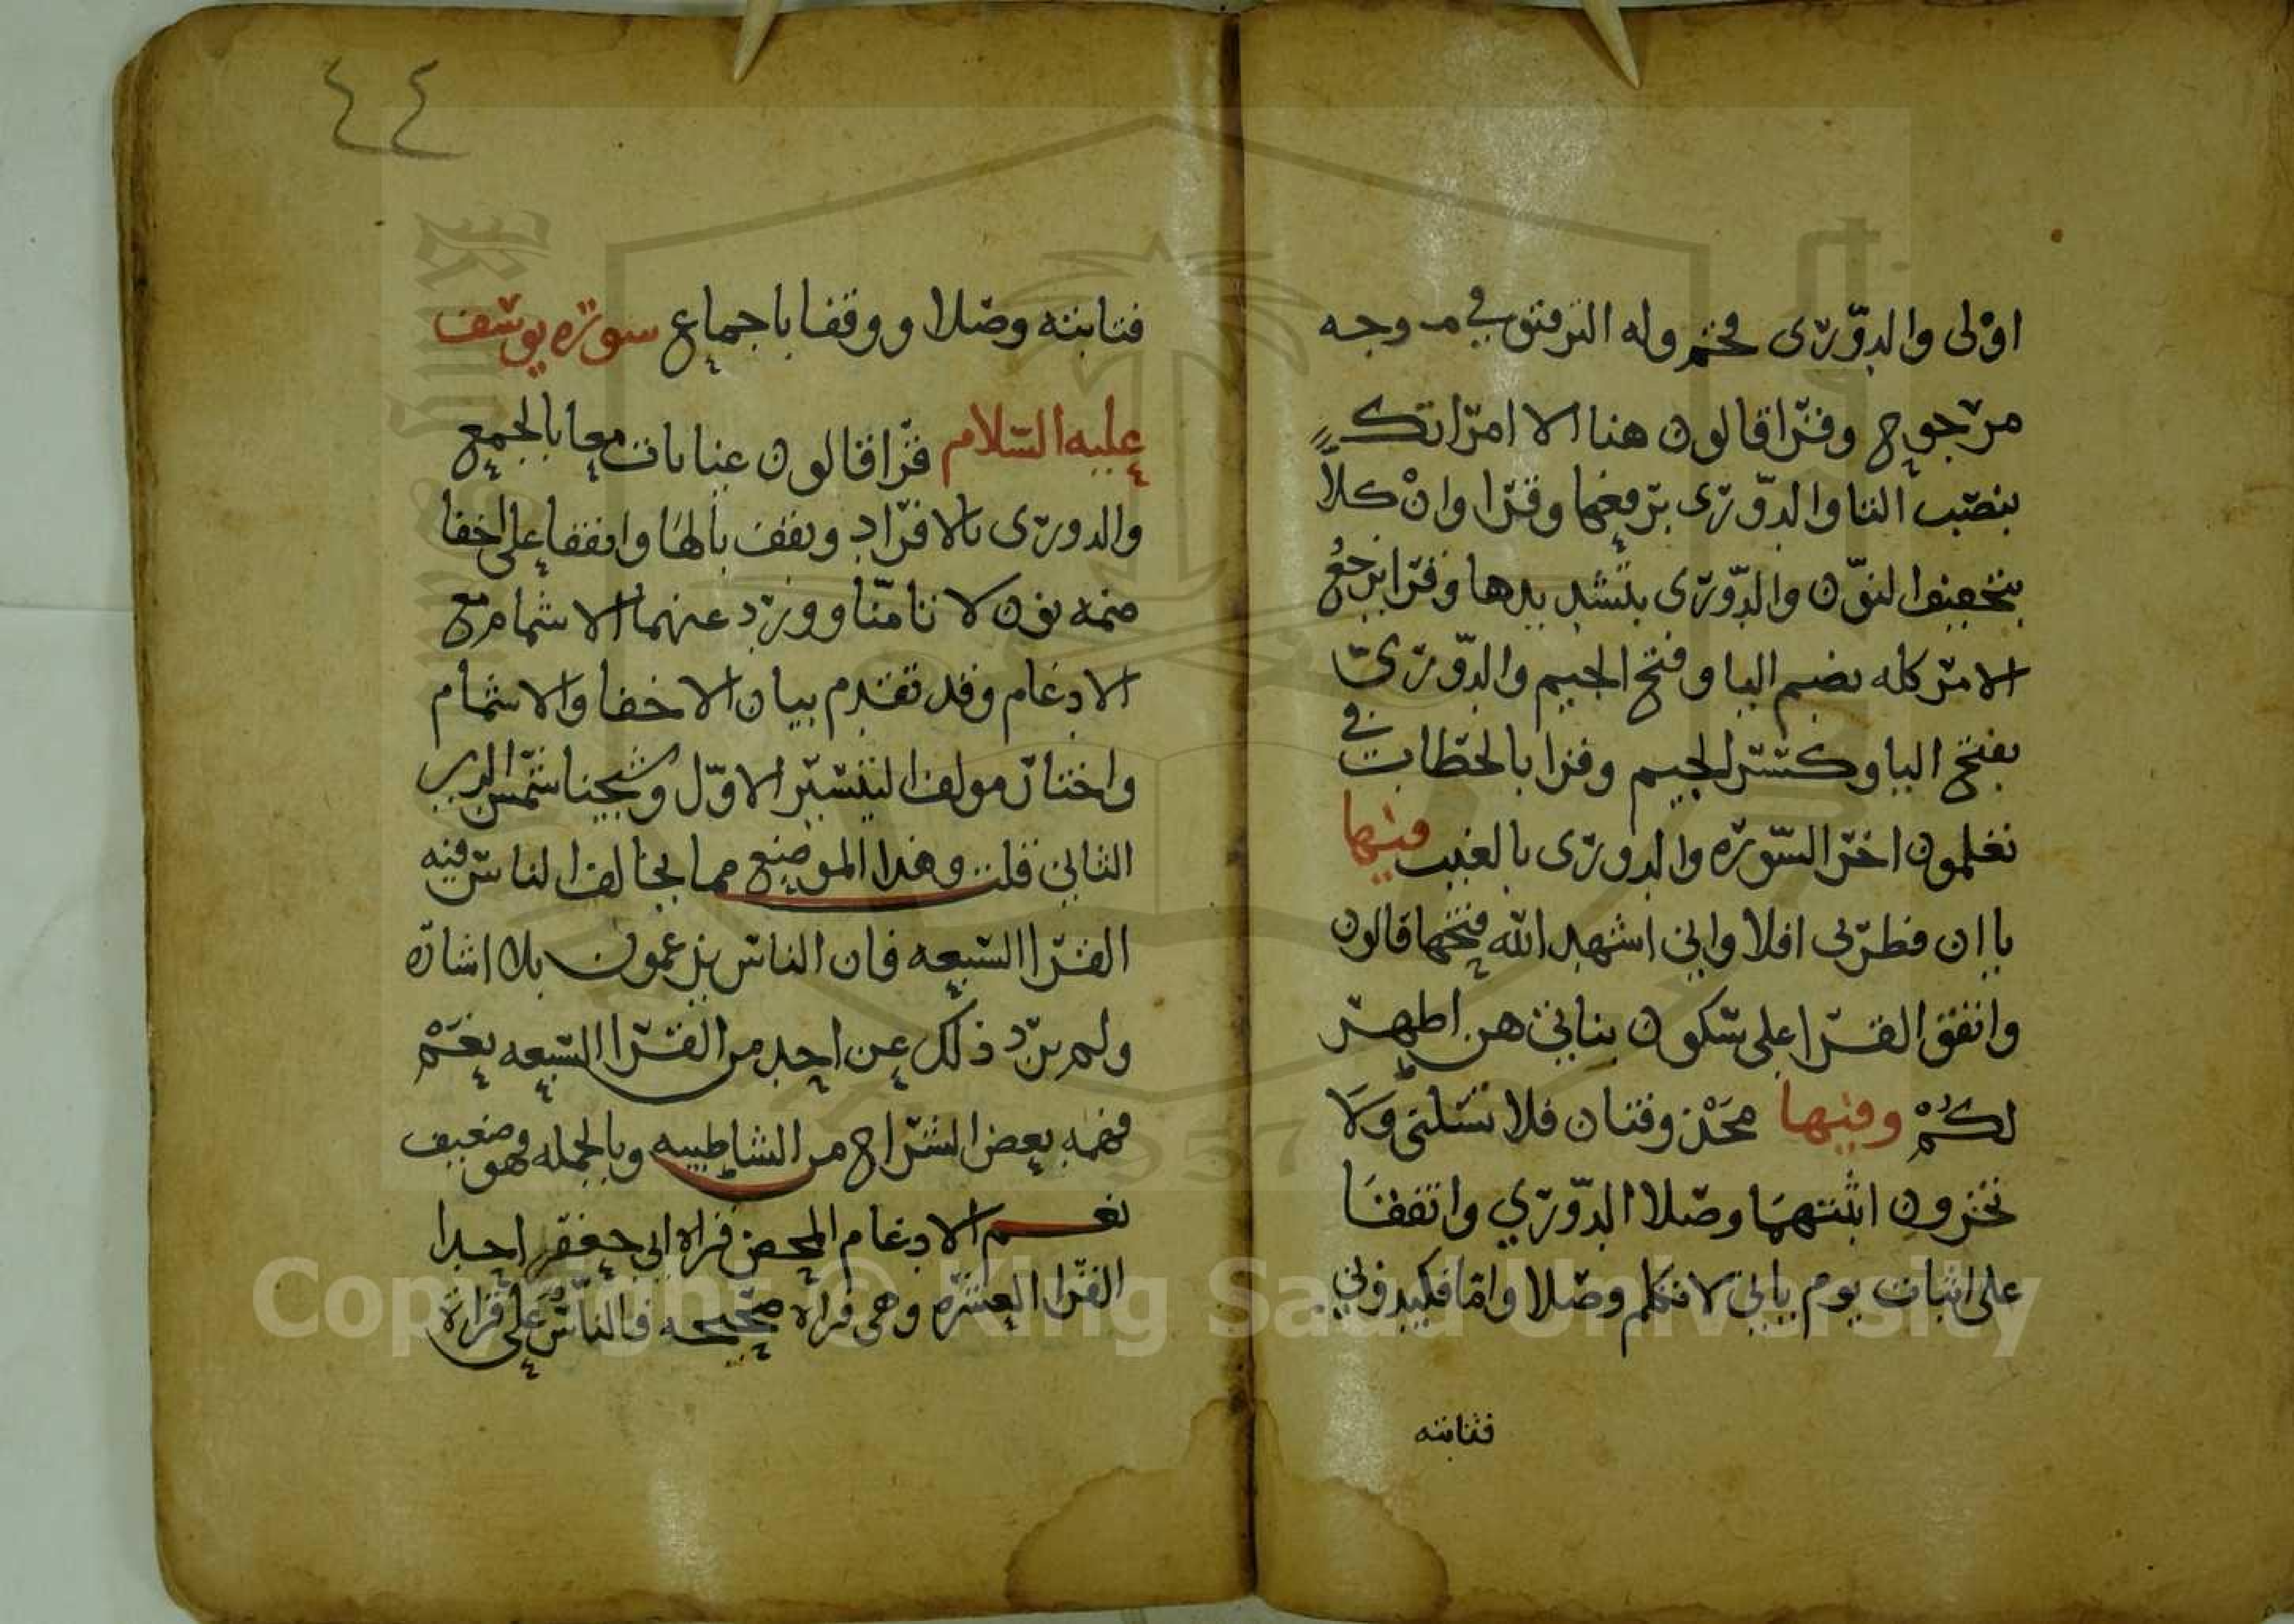 اوْلى والدّورى مخم وله الترقيق في وجه
مرجوح وقرا قالون هنا الا امراتك
بنصب التا والدّورى برفعها وقرا وانْ كلاً
بتخفيف النوّن والدّورى بتشديدها وقرا يرجعُ
الامر كله بضم اليا وفتح الجيم والدّورى
بفتح اليا وكسر الجيم وقرا بالخطاب في
تعلمون اخر السّورة والدورى بالغيب فيها
يا ان فطرنى افلا واني اشهد الله فتحهما قالون
واتفق القرا على سكون بناتي هن اطهر
لكُمْ وفيها محذوفتان فلا تسلنى وَلَا
تخزون اثبتهما وصلا الدّوري واتفقا
على اثبات يوم ياتي لا تكلم وصلا واما فكيدوني
فثابته
٤٤
فثابته وصلا ووقفا باجماع سورة يوسف
عليه السلام قرا قالون غيابات معا بالجمع
والدورى بالافراد ويقف بالها واتفقا على اخفا
ضمه نون لا تامنّا وورد عنهما الاشمام مع
الادغام وقد تقدم بيان الاخفا والاشمام
واختار مولف التيسير الاوّل وشيخنا شمس الدين
الثاني قلت وهذا الموضع مما يخالف الناس فيه
القرا السبعه فان الناس يزعمون بلا اشاره
ولم يرد ذلك عن احد من القرا السبعه نعَمْ
فهمه بعض الشراح من الشاطبيه وبالجمله فهو ضعيف
نعم الادغام المحض قراة ابي جعفر احد
القرا العشره وهى قراة صحيحه فالناسُ عَلى قراة
Copyright © King Saud University
1957